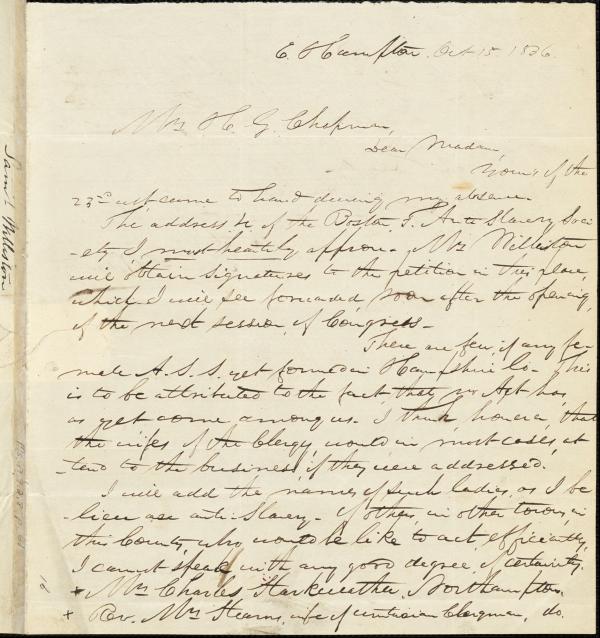 E. Hampton. Oct 15. 1836.
Mrs H. G. Chapman,
Dear Madam,
Yours of the
23d ult came to hand during my absence.
The address &c of the Boston F. Anti Slavery Soci-
-ety I most heartily approve. Mrs Williston
will obtain signatures to the petition in this place,
which I will see forwarded soon after the opening
of the next session of Congress-
There are few, if any fe-
male A. S. S. yet formed in Hampshire Co- This
is to be attributed to the fact that no Agt has
as yet come among us. I think, however, that
the wifes of the Clergy would in most cases, at
-tend to the business, if they were addressed.
I will add the names of such ladies, as I be
-lieve are anti-Slavery- of others, in other towns, in
this County, who would be like to act efficiently,
I cannot speak with any good degree of certainty.
+ Mrs Charles Starkweather, Northampton,
+ Rev. Mrs Stearns, wife of unitarian Clergman, do.
Saml Williston
16